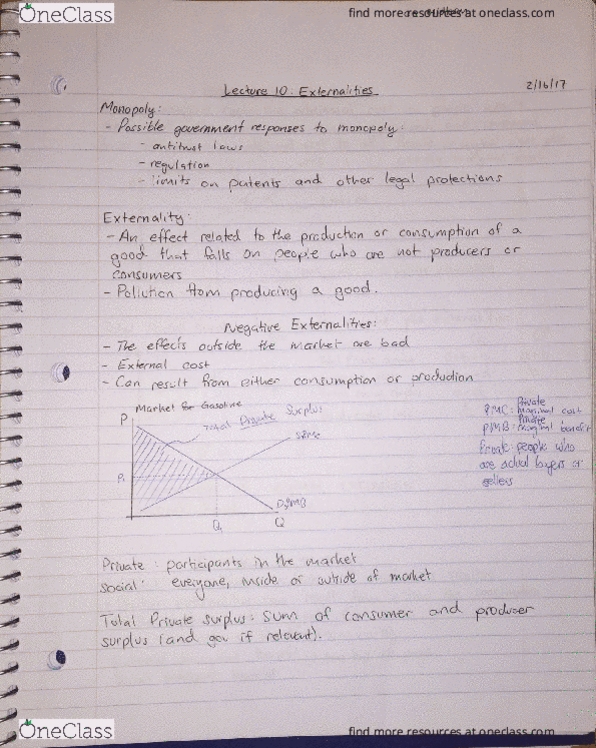 OneClass
find more resources at oneclass.com
Lecture 10: Externalities
2/16/17
Monopoly:
- Possible government responses to monopoly:
- antitrust laws
- regulation
- limits on patents and other legal protections
Externality:
- An effect related to the production or consumption of a
good that falls on people who are not producers or
consumers
- Pollution from producing a good.
Negative Externalities:
- The effects outside the market are bad
- External cost
- Can result from either consumption or production
Market for Gasoline
P
Total Private Surplus
P₁
Q₁
Q
Private
PMC: Marginal cost
Private
PMB: Marginal benefit
Private: people who
are actual buyers or
sellers
Private: participants in the market
Social: everyone, inside or outside of market
Total Private surplus: sum of consumer and producer
surplus (and gov if relevant).
OneClass
find more resources at oneclass.com